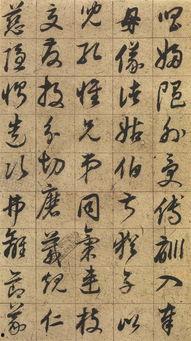 唱婦隨外受傅訓入奉
母儀諸姑伯叔猶子比
兒孔懷兄弟同氣連枝
交友投分切磨箴規仁
慈隱惻造次弗離節義